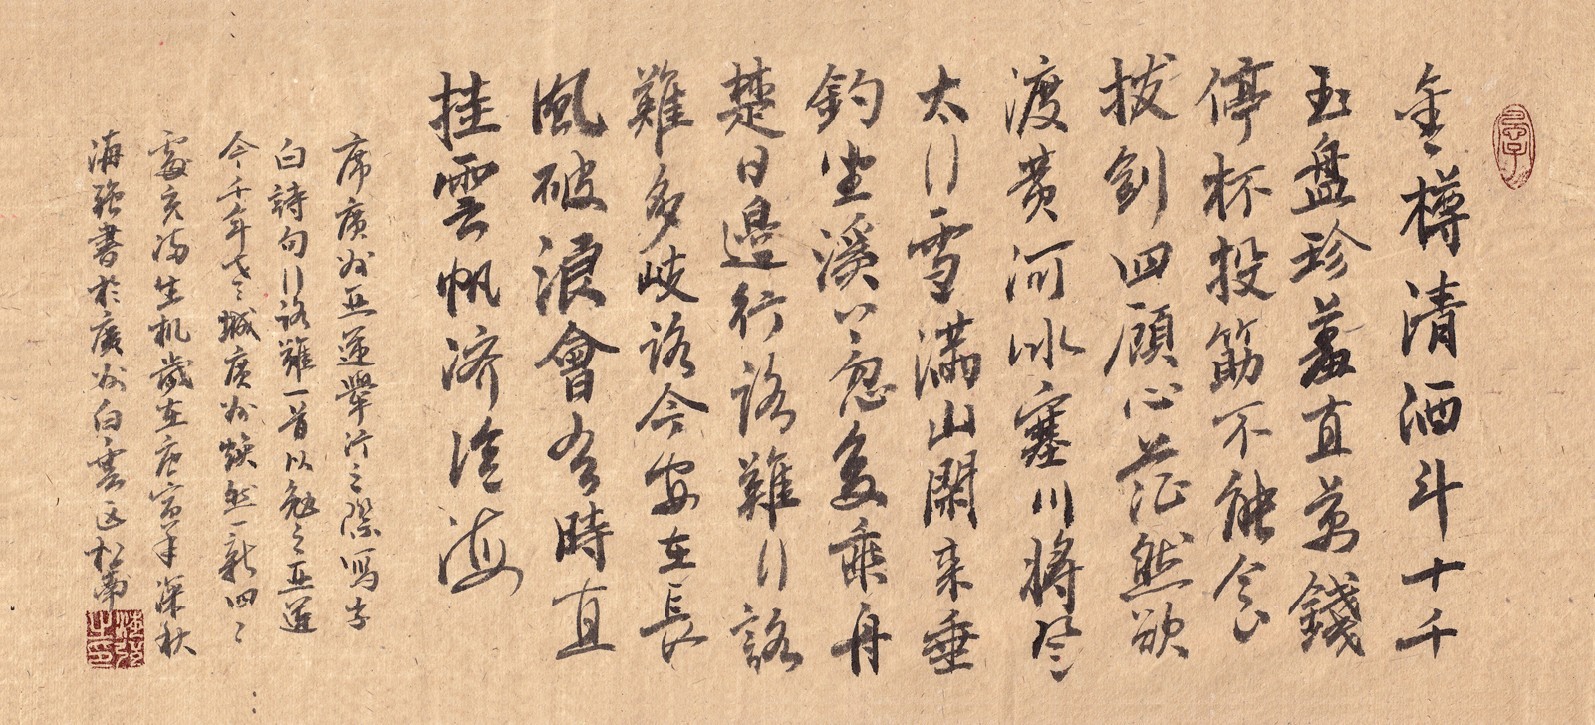 金樽清酒斗十千
玉盘珍羞直萬錢
停杯投筯不能食
拔劍四顧心茫然欲
渡黄河冰塞川將登
太行雪滿山閑来垂
釣坐溪上忽復乘舟
梦日邊行路難行路
難多歧路今安在長
風破浪會有時直
挂雲帆济滄海
廣州亚運舉行之際寫李
白詩句行路難一首以勉之亚運
今千年古城廣州焕然一新四
處充满生机歲在庚寅年深秋
海強書於廣州白雲区松南
海强之印